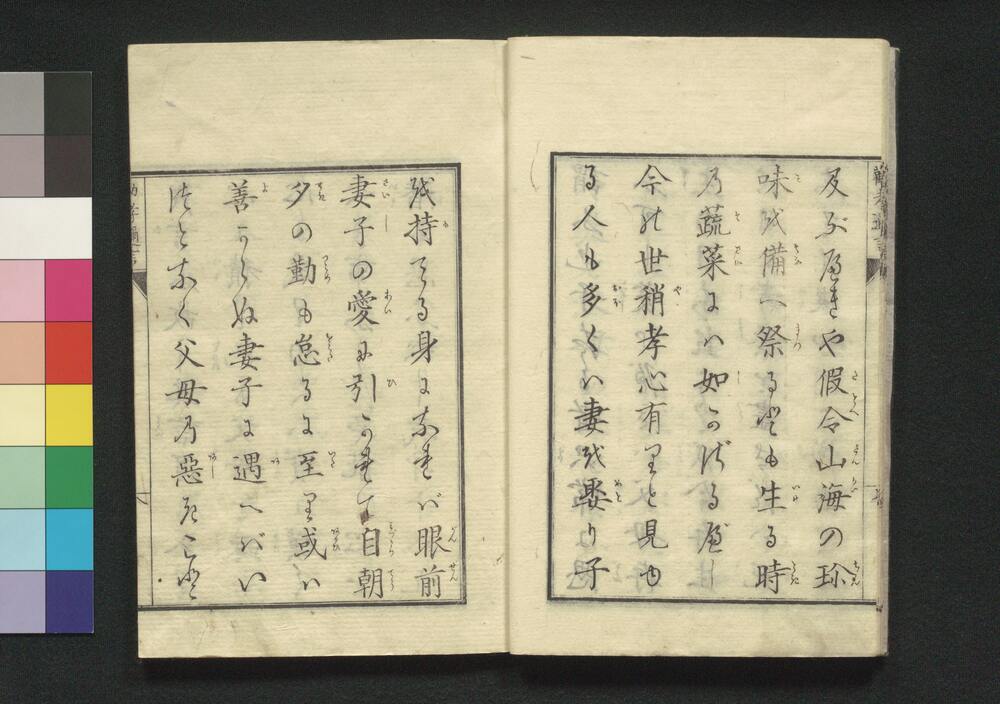 及ぶべきや假令山海の珎
味を備へ祭るとも生る時
の蔬菜には如かざるべし
今の世稍孝心有りと見ゆ
る人も多くは妻を娶り子
を持たる身になれば眼前
妻子の愛に引かれて自朝
夕の勤も怠るに至り或は
善からぬ妻子に遇へばい
つとなく父母の惡きこと